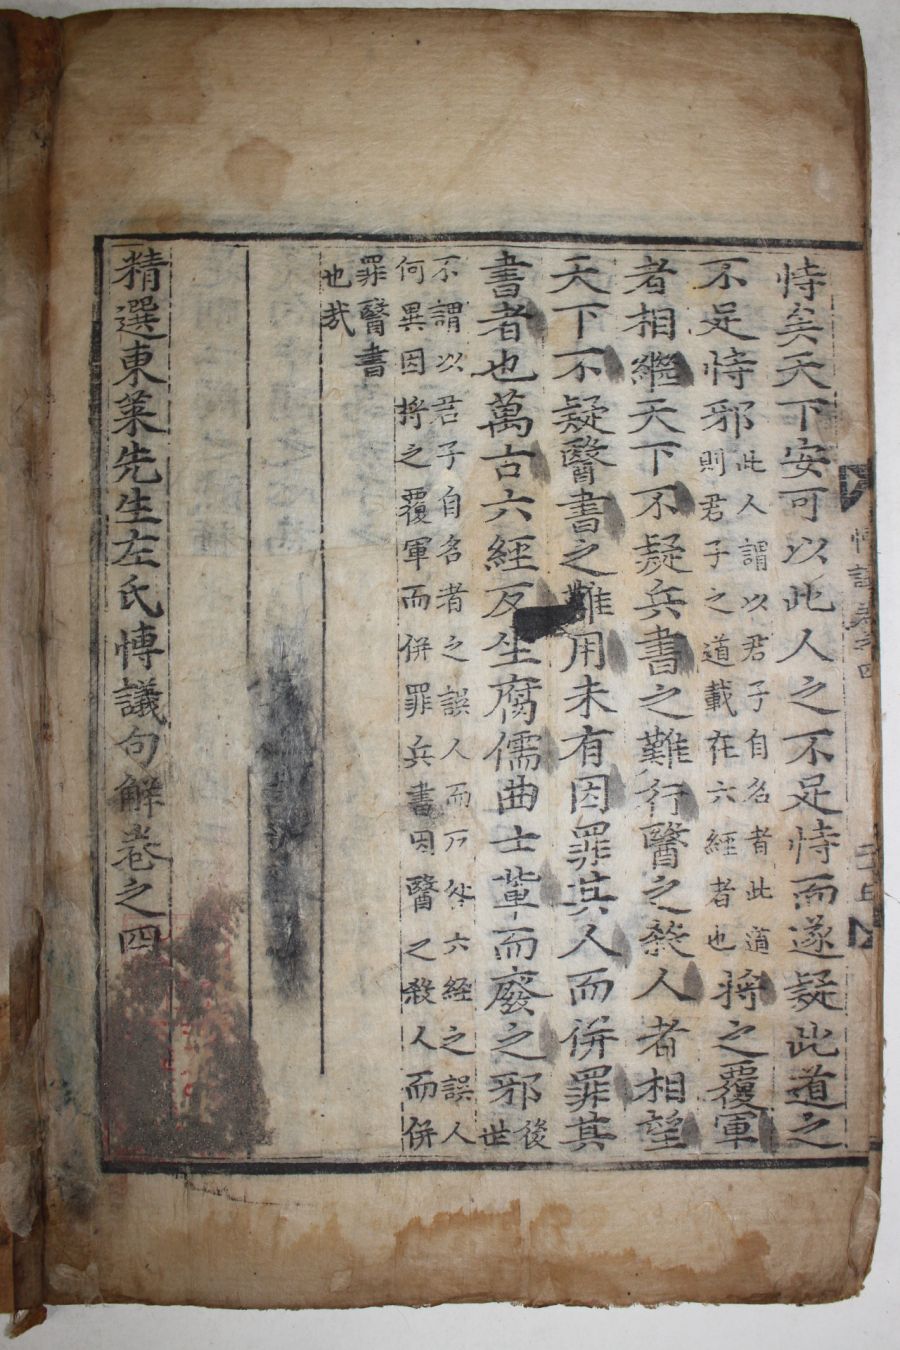 恃矣天下安可以此人之不足恃而遂疑此道之
不足恃邪此人謂以君子自名者此道則君子之道載在六經者也將之覆軍
者相繼天下不疑兵書之難行醫之殺人者相望
天下不疑醫書之難用未有因罪其人而併罪其
書者也萬古六經反坐腐儒曲士輩而廢之邪後世
不謂以君子自名者之誤人而乃咎六經之誤人
何異因將之覆軍而併罪兵書因醫之殺人而併
罪醫書
也哉
精選東萊先生左氏愽議句解卷之四